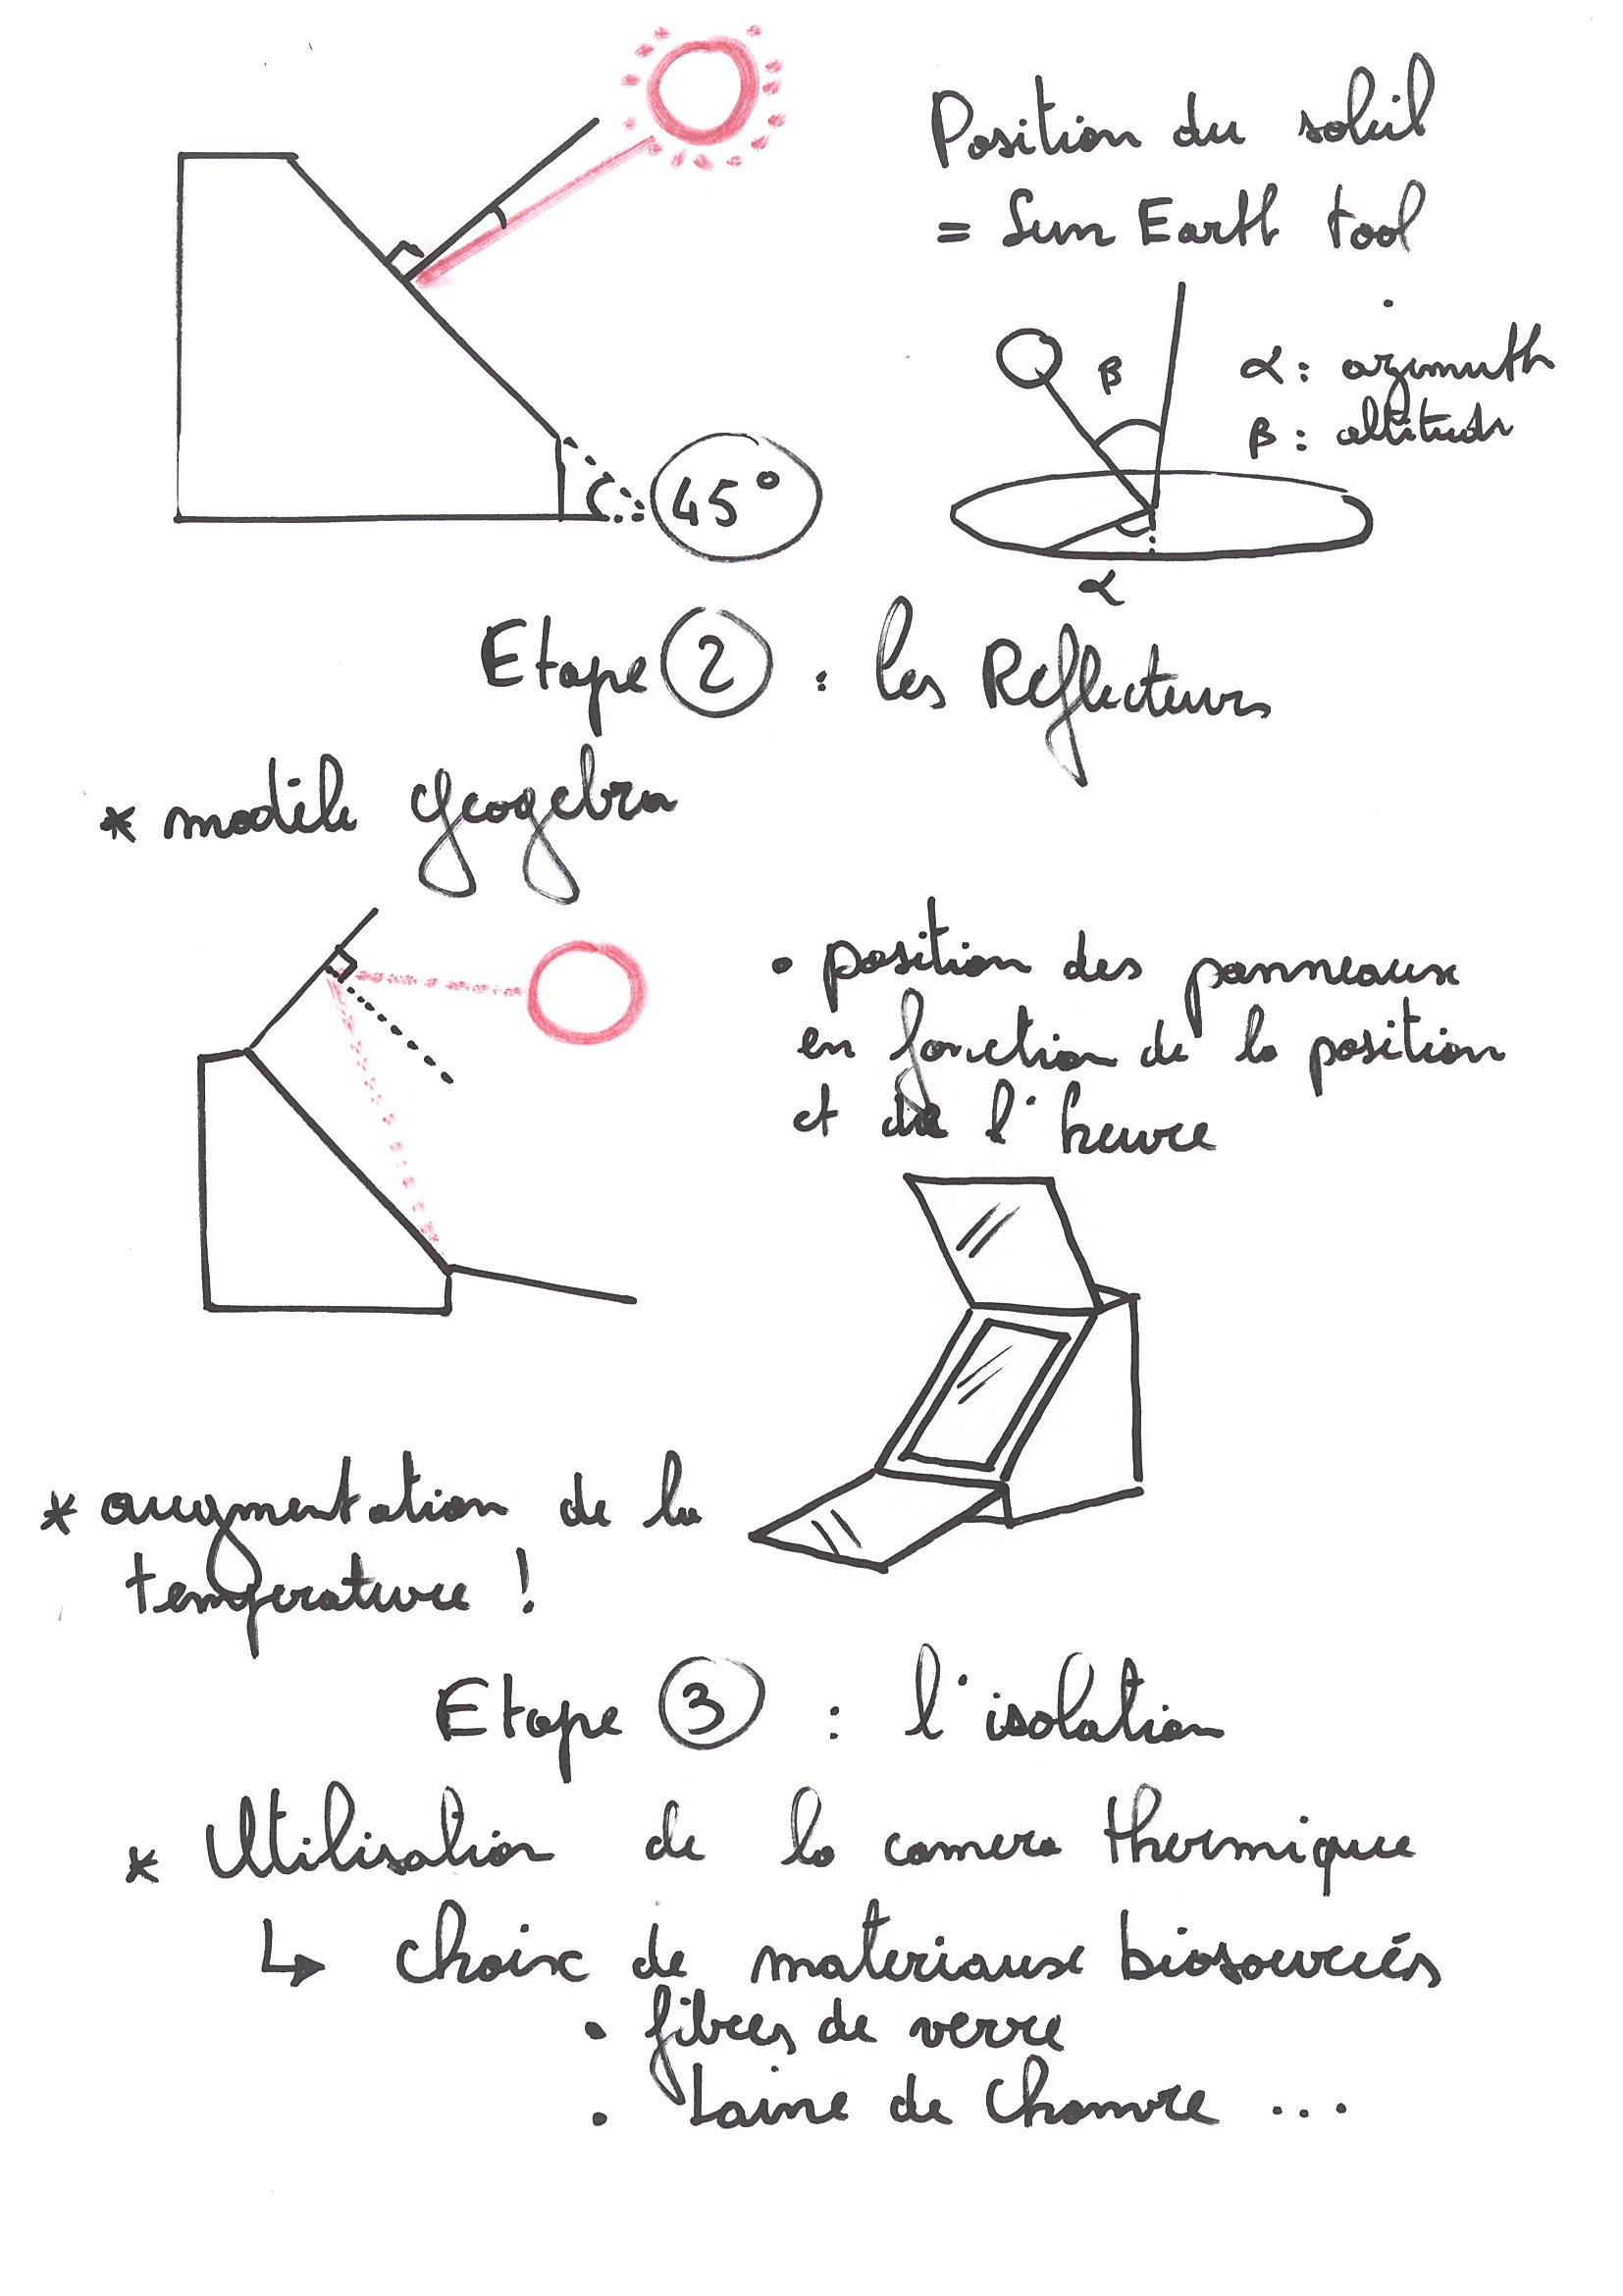 Position du soleil
= Sun Earth tool
β
α : azimuth
β : altitude
45°
α
Etape 2 : les Reflecteurs
* modèle Geogebra
• position des panneaux
en fonction de la position
et de l'heure
* augmentation de la
temperature !
Etape 3 : l'isolation
* Utilisation de la camera thermique
↳ choix de materiaux biosourcés
• fibres de verre
• Laine de Chanvre ...